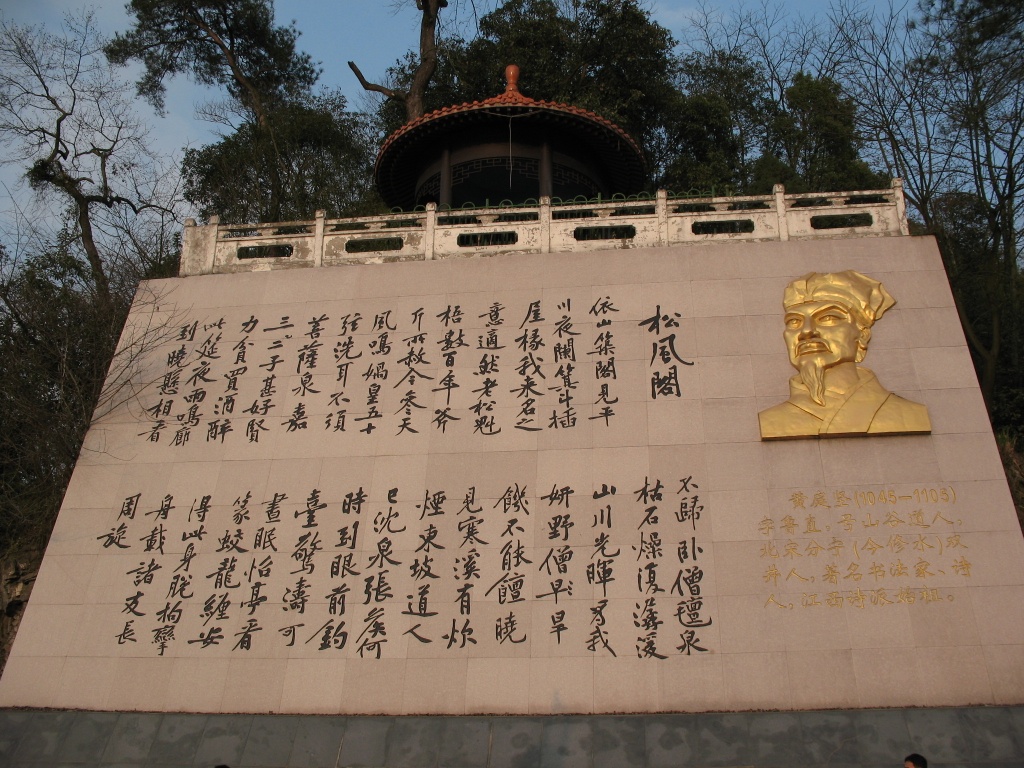 松風閣
依山築閣見平
川夜闌箕斗插
屋椽我來名之
意適然老松魁
梧數百年斧
斤所赦令參天
風鳴媧皇五十
弦洗耳不須
菩薩泉嘉
三二子甚好賢
力貧買酒醉
此筵夜雨鳴廊
到曉懸相看
不歸臥僧氈泉
枯石燥復潺湲
山川光暉為我
妍野僧早旱
饑不能饘曉
見寒溪有炊
煙東坡道人
已沈泉張侯何
時到眼前釣
臺驚濤可
晝眠怡亭看
篆蛟龍纏安
得此身脫拘攣
舟載諸友長
周旋
黄庭坚(1045—1105)
字鲁直，号山谷道人，
北宋分宁(今修水)双
井人，著名书法家、诗
人，江西诗派始祖。